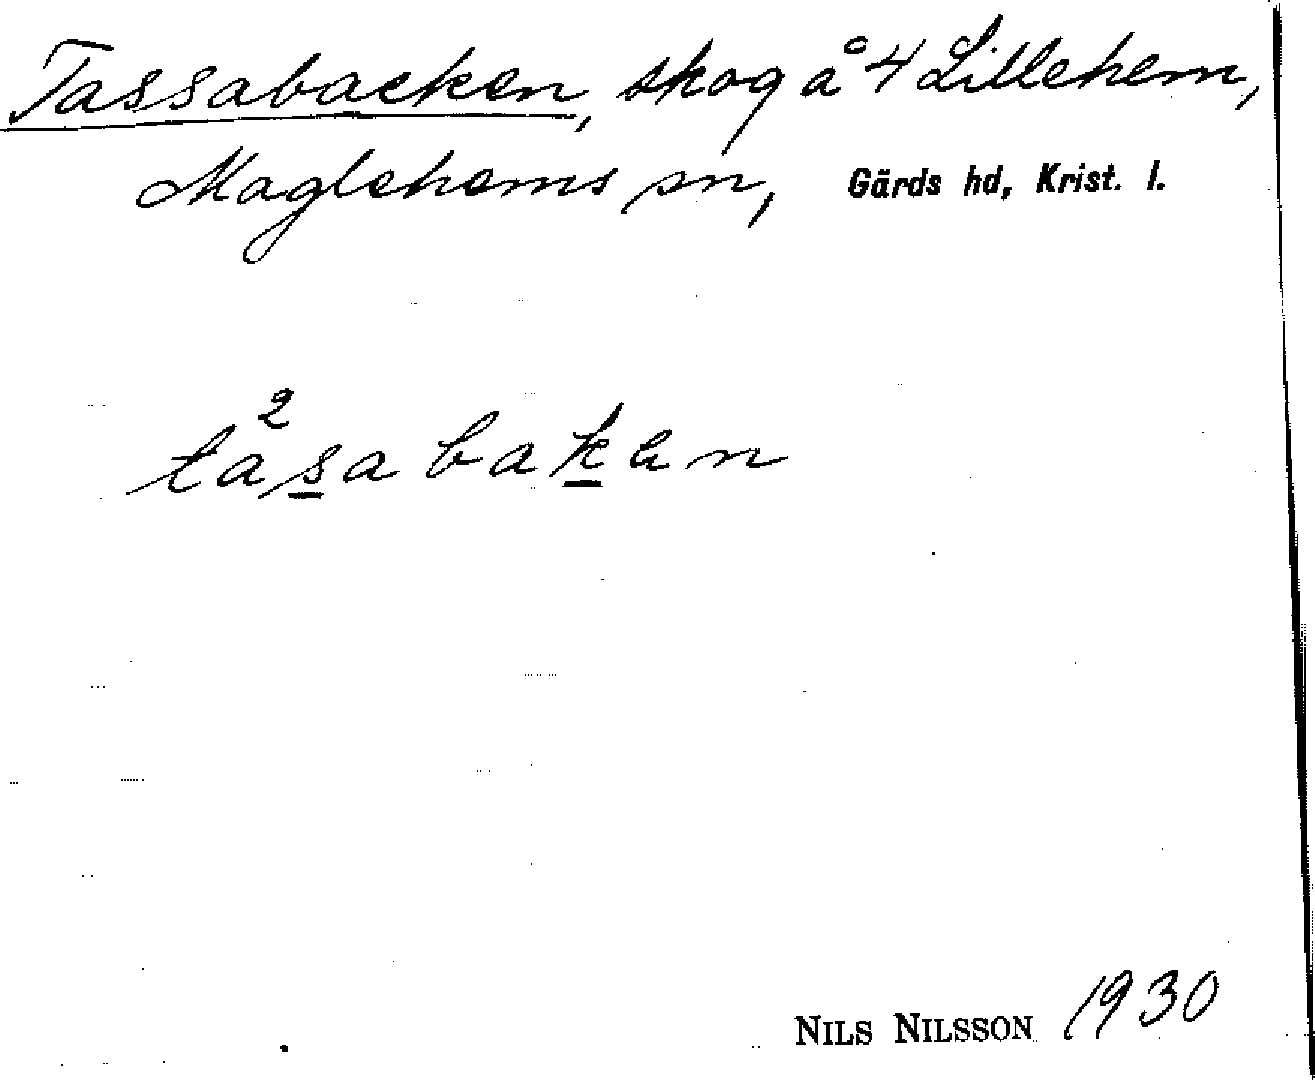 Tassabacken, skog å 4 Lillehem,
Maglehems sn, Gärds hd, Krist. l.
ta²s̲a bak̲en
NILS NILSSON 1930